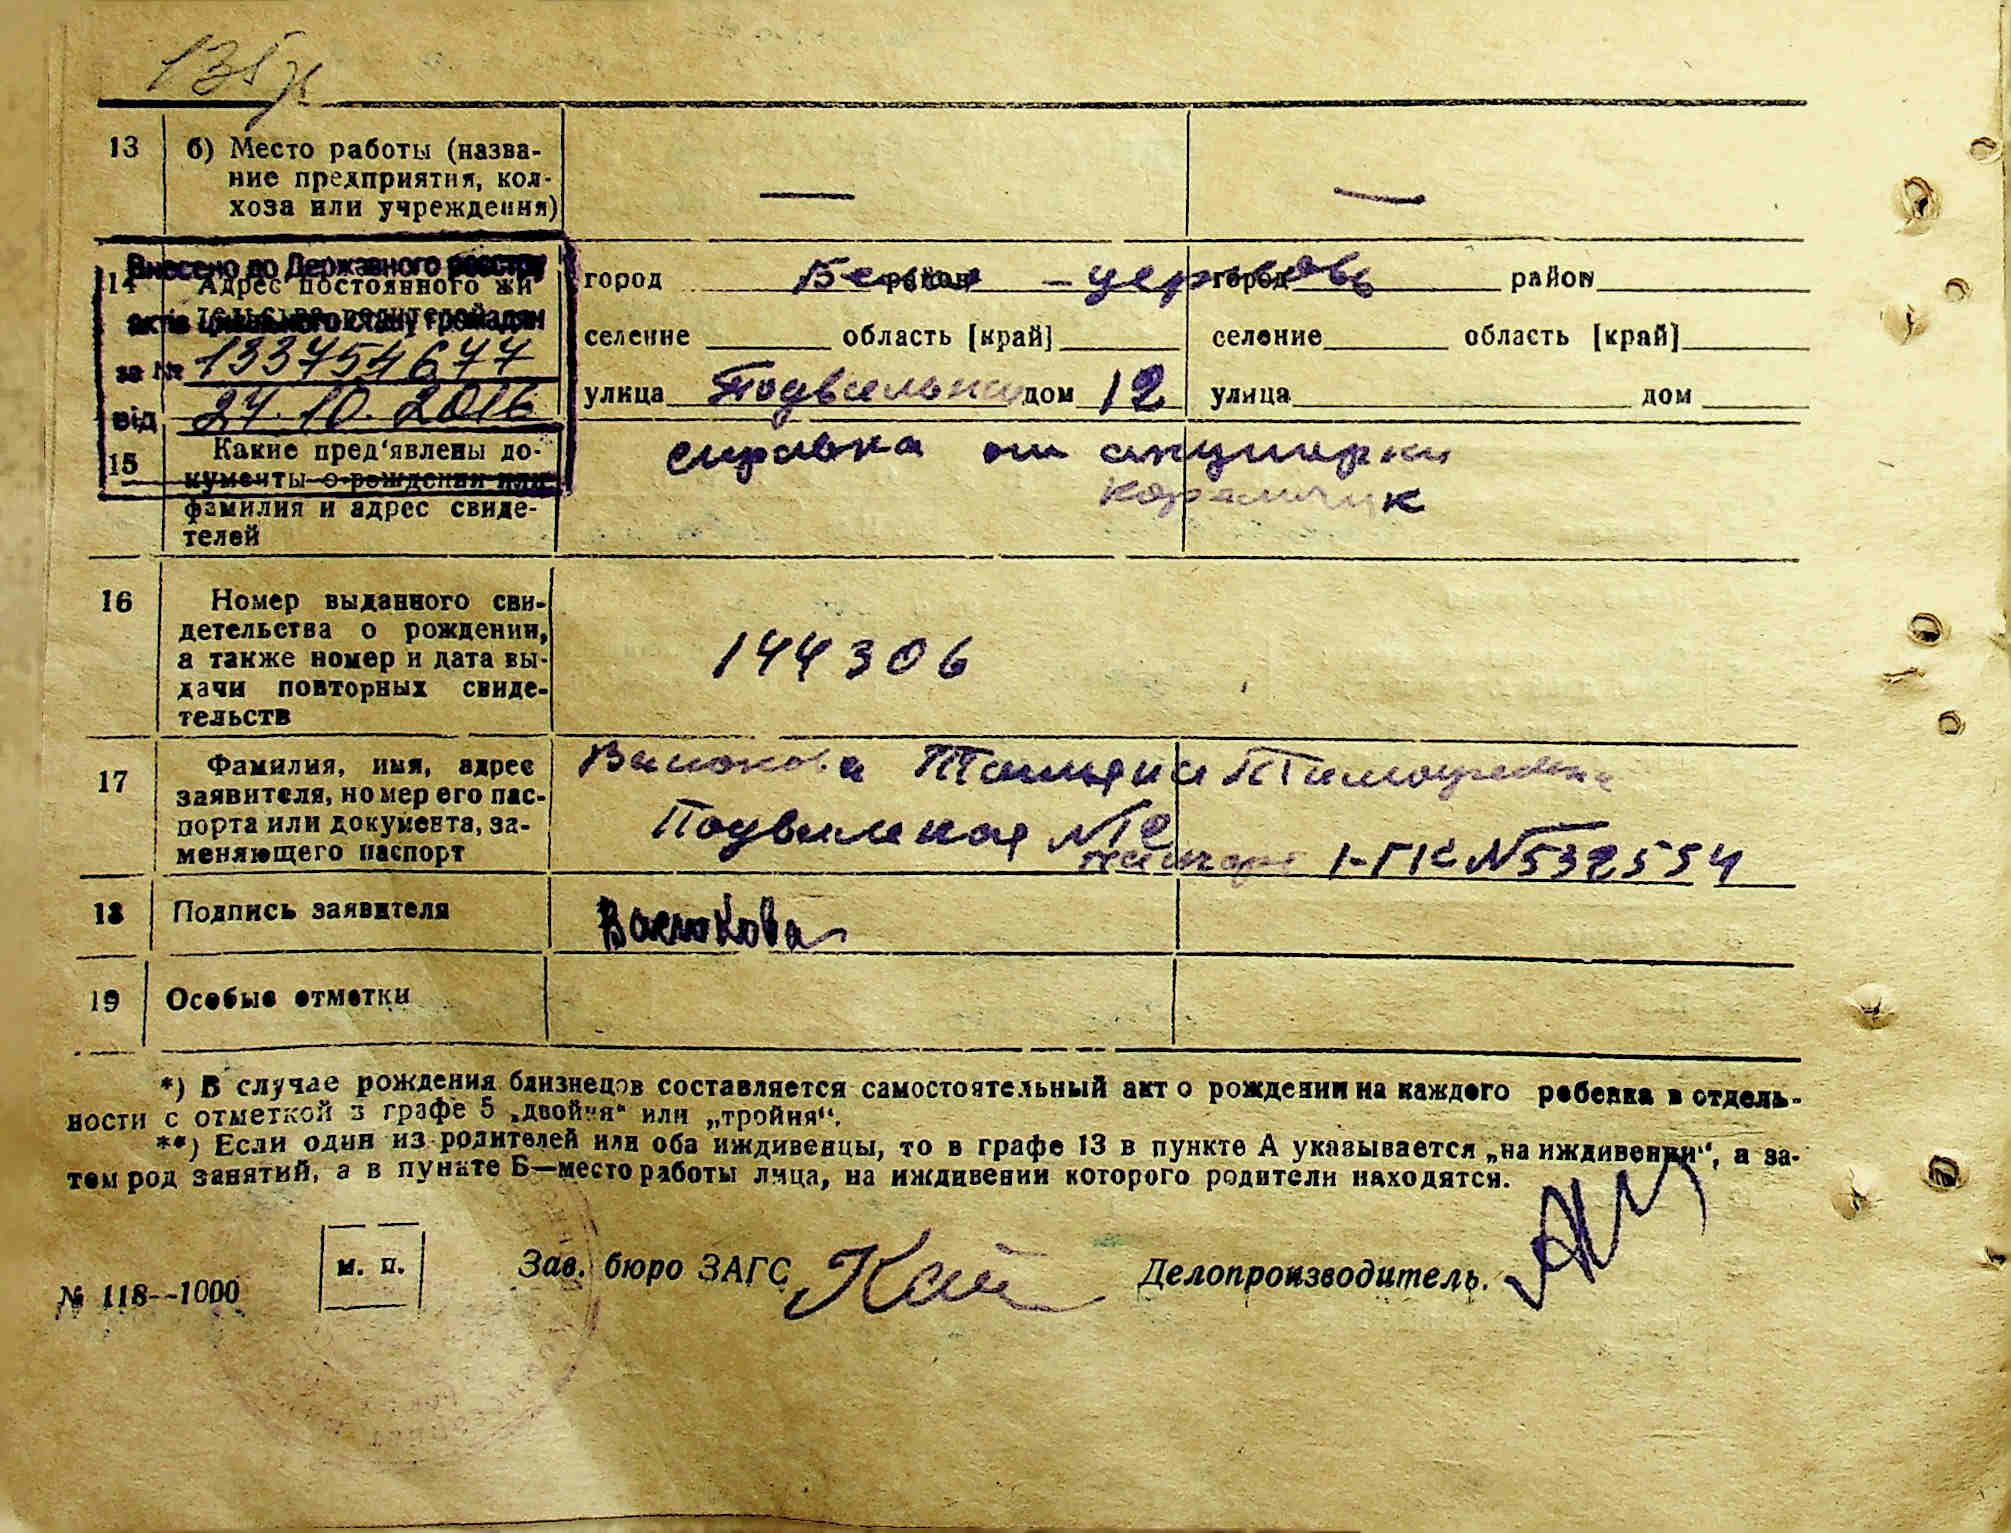 13 б) Место работы (назва-
ние предприятия, кол-
хоза или учреждения)
— —
Внесено до Державного реєстру
14 Адрес постоянного жи
актів цивільного стану громадян
за № 133754677
від 27.10.2016
город район Бело - церковь город район
селение область [край] селение область [край]
улица дом 12 улица дом
15 Какие пред'явлены до-
кументы о рождении или
фамилия и адрес свиде-
телей
справка от акушерки
16 Номер выданного сви-
детельства о рождении,
а также номер и дата вы-
дачи повторных свиде-
тельств
144306
17 Фамилия, имя, адрес
заявителя, номер его пас-
порта или документа, за-
меняющего паспорт
Васюкова Тимофеевна
№12
паспорт 1-ГК №532554
18 Подпись заявителя
Васюкова
19 Особые отметки
*) В случае рождения близнецов составляется самостоятельный акт о рождении на каждого ребенка в отдель-
ности с отметкой в графе 5 „двойня“ или „тройня“.
**) Если один из родителей или оба иждивенцы, то в графе 13 в пункте А указывается „на иждивении“, а за-
тем род занятий, а в пункте Б—место работы лица, на иждивении которого родители находятся.
м. п.
Зав. бюро ЗАГС
Делопроизводитель.
№ 118--1000